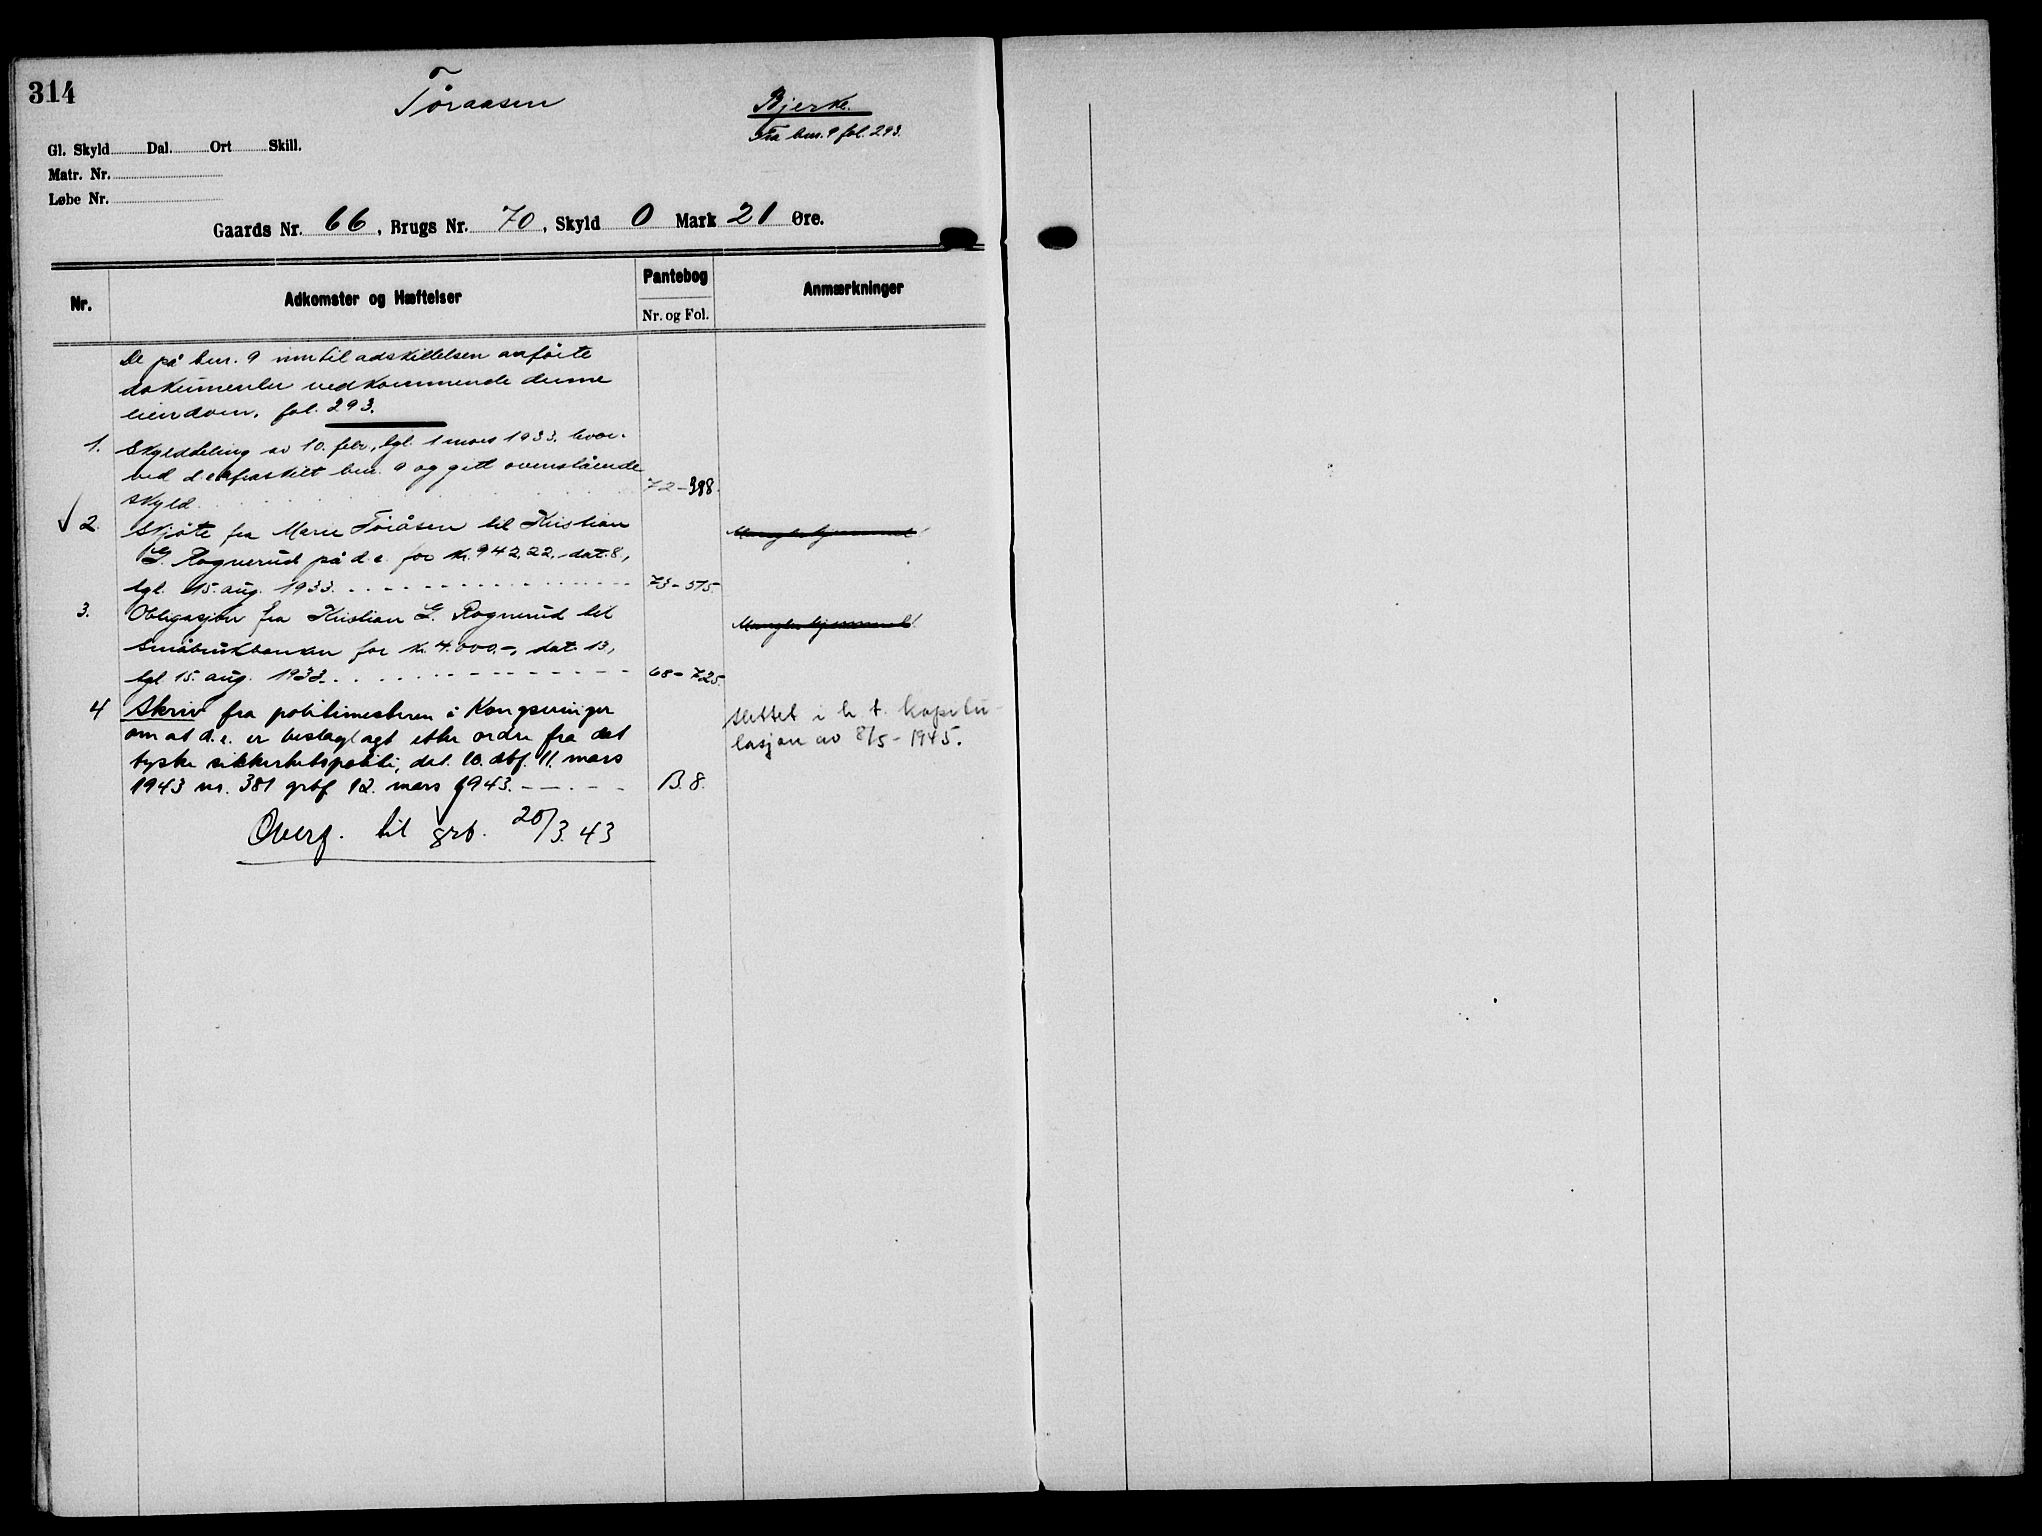 314
Tøraasen
Bjerke.
Fra bnr. 9 fol. 293.
Gl. Skyld Dal. Ort Skill.
Matr. Nr.
Løbe Nr.
Gaards Nr. 66, Brugs Nr. 70, Skyld 0 Mark 21 Øre.
Nr. Adkomster og Hæftelser Pantebog Anmærkninger
Nr. og Fol.
De på bnr. 9 inntil adskillelsen anførte
dokumenter vedkommende denne
eiendom, fol. 293.
1. Skylddeling av 10. febr., tgl. 1 mars 1933. hvor-
ved d.e. fraskilt bnr. 9 og gitt ovenstående
skyld. 72-398.
2. Skjøte fra Marie Töråsen til Kristian
G. Rognerud på d.e. for kr. 942,22.- dat. 8.,
tgl. 15. aug. 1933. 73-515.
Mangler hjemmel!
3. Obligasjon fra Kristian G. Rognerud til
Småbrukbanken for kr. 4.000.-, dat. 13,
tgl. 15. aug. 1933. 68-725.
Mangler hjemmel!
4 Skriv fra politimesteren i Kongsvinger
om at d.e. er beslaglagt etter ordre fra det
tyske sikkerhetspoliti, dat. 10. dbf. 11. mars
1943 nr. 381 grbf 12. mars 1943. B. 8.
slettet i h. t. kapitu-
lasjon av 8/5-1945.
Overf. til grb. 20/3.43